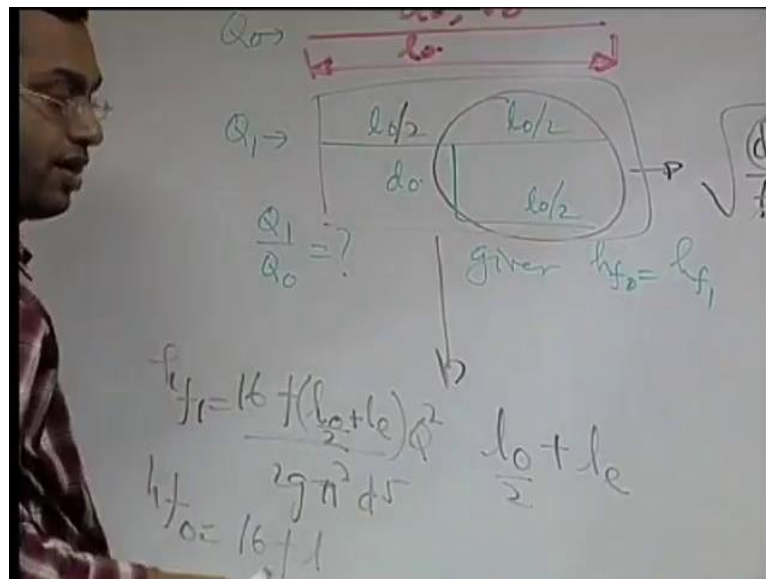 Q₀→
l₀
Q₁→ l₀/2 l₀/2
d₀
l₀/2
Q₁/Q₀ = ?
given h_f₀ = h_f₁
h_f₁ = 16 f (l₀/2 + lₑ) Q² / 2gπ² d5
l₀/2 + lₑ
h_f₀ = 16 f l